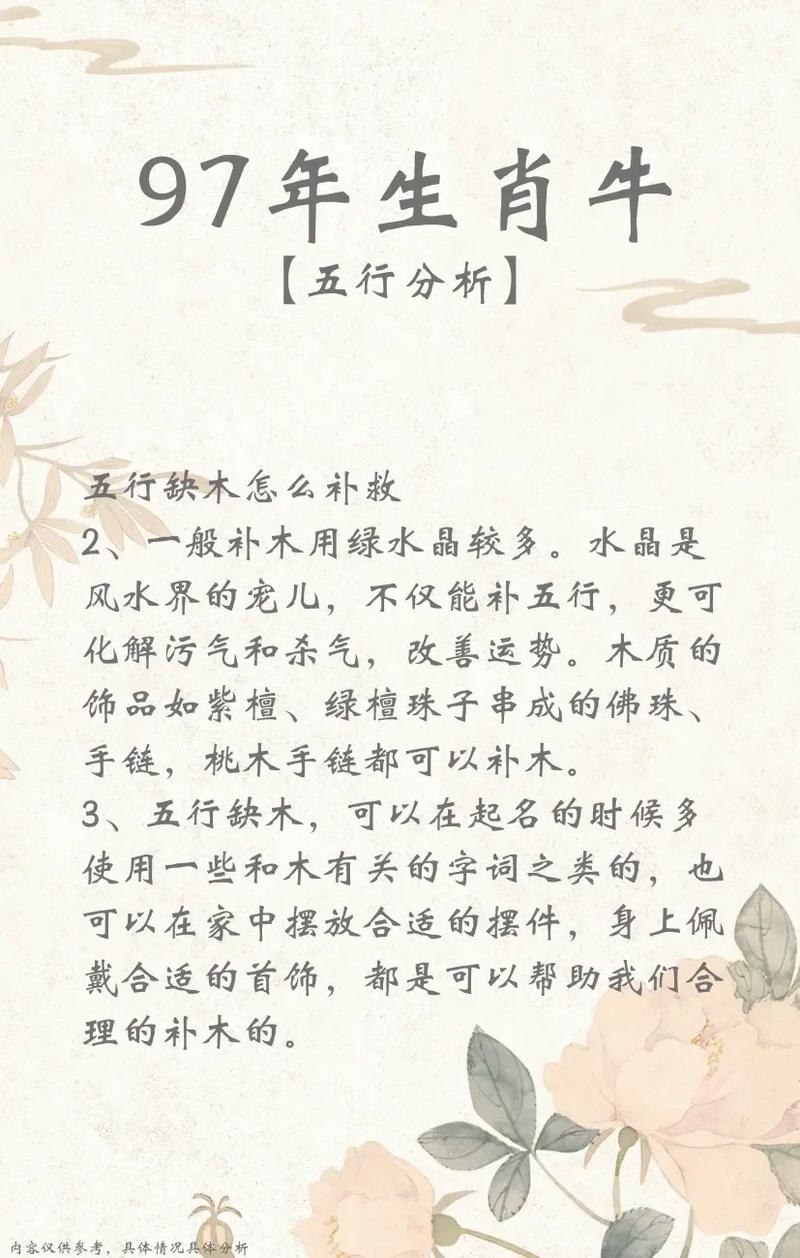 97年生肖牛
【五行分析】
五行缺木怎么补救
2、一般补木用绿水晶较多。水晶是
风水界的宠儿，不仅能补五行，更可
化解污气和杀气，改善运势。木质的
饰品如紫檀、绿檀珠子串成的佛珠、
手链，桃木手链都可以补木。
3、五行缺木，可以在起名的时候多
使用一些和木有关的字词之类的，也
可以在家中摆放合适的摆件，身上佩
戴合适的首饰，都是可以帮助我们合
理的补木的。
内容仅供参考，具体情况具体分析